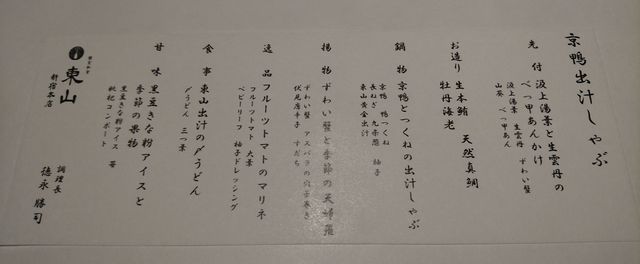 京鴨出汁しゃぶ
先付 汲上湯葉と生雲丹の
べっ甲あんかけ
汲上湯葉 生雲丹 ずわい蟹
山葵 べっ甲あん
お造り 生本鮪 天然真鯛
牡丹海老
鍋物 京鴨とつくねの出汁しゃぶ
京鴨 鴨つくね
長ねぎ 九条葱 柚子
東山黄金出汁
揚物 ずわい蟹と季節の天婦羅
ずわい蟹 アスパラの穴子巻き
伏見唐辛子 すだち
逸品 フルーツトマトのマリネ
フルーツトマト 大葉
ベビーリーフ 柚子ドレッシング
食事 東山出汁の〆うどん
〆うどん 三つ葉
甘味 黒豆きな粉アイスと
季節の果物
黒豆きな粉アイス 苺
枇杷コンポート
東山
新宿本店
調理長
徳永 勝司